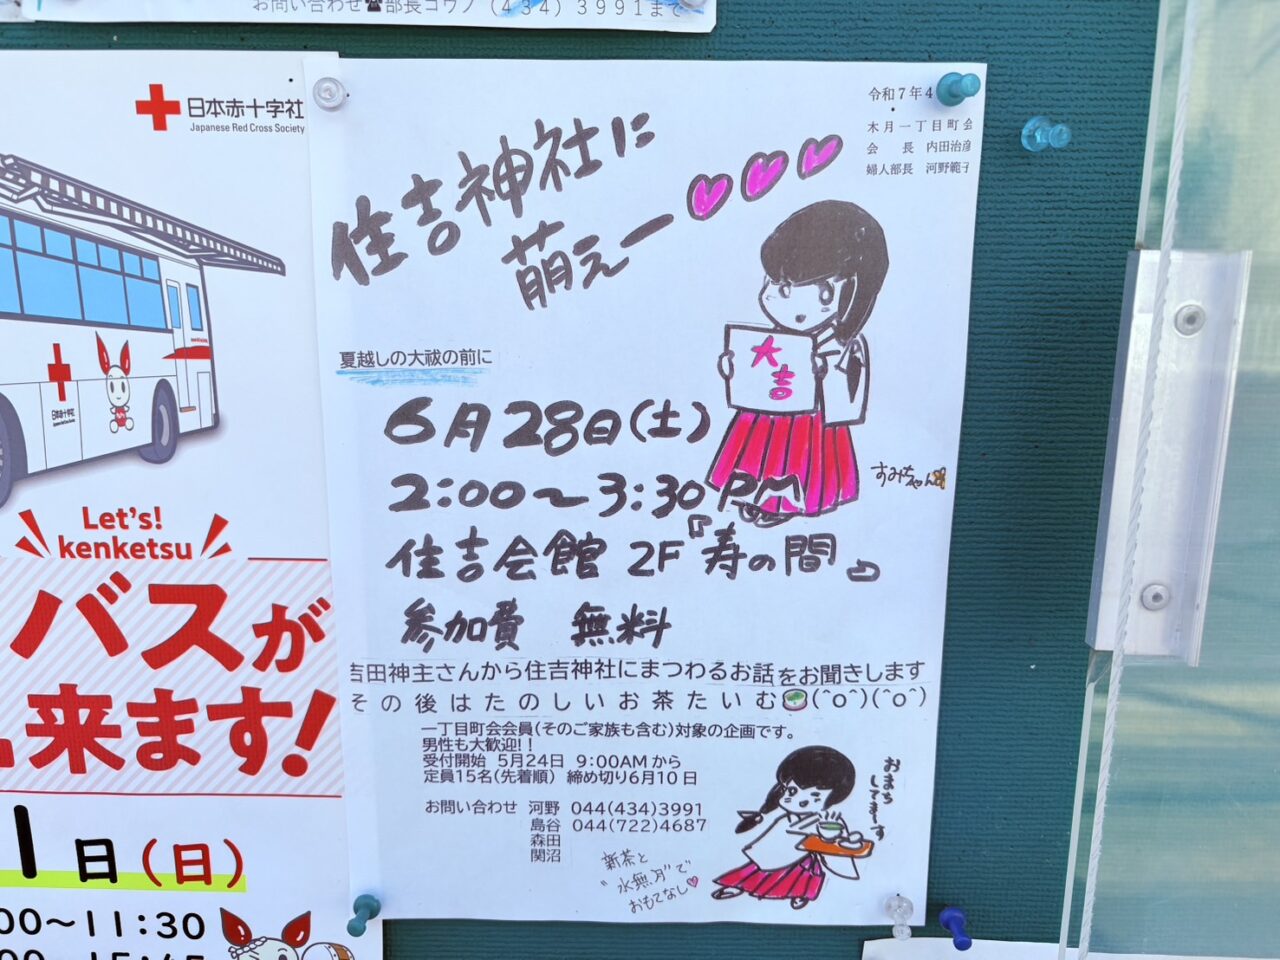 お問い合わせ☎部長コウノ(434)3991まで
日本赤十字社
Japanese Red Cross Society
日本赤十字社
Let's!
kenketsu
バスが
来ます!
1日(日)
00〜11:30
令和7年4
木月一丁目町会
会 長 内田治彦
婦人部長 河野範子
住吉神社に
萌え一
大吉
すみちゃん
夏越しの大祓の前に
6月28日(土)
2:00〜3:30 PM
住吉会館 2F『寿の間』
参加費 無料
吉田神主さんから住吉神社にまつわるお話をお聞きします
その後はたのしいお茶たいむ🍵(^o^)(^o^)
一丁目町会会員(そのご家族も含む)対象の企画です。
男性も大歓迎!!
受付開始 5月24日 9:00AMから
定員15名(先着順) 締め切り6月10日
お問い合わせ 河野 044(434)3991
島谷 044(722)4687
森田
関沼
新茶と
"水無月"で
おもてなし♡
おまち
してま〜す